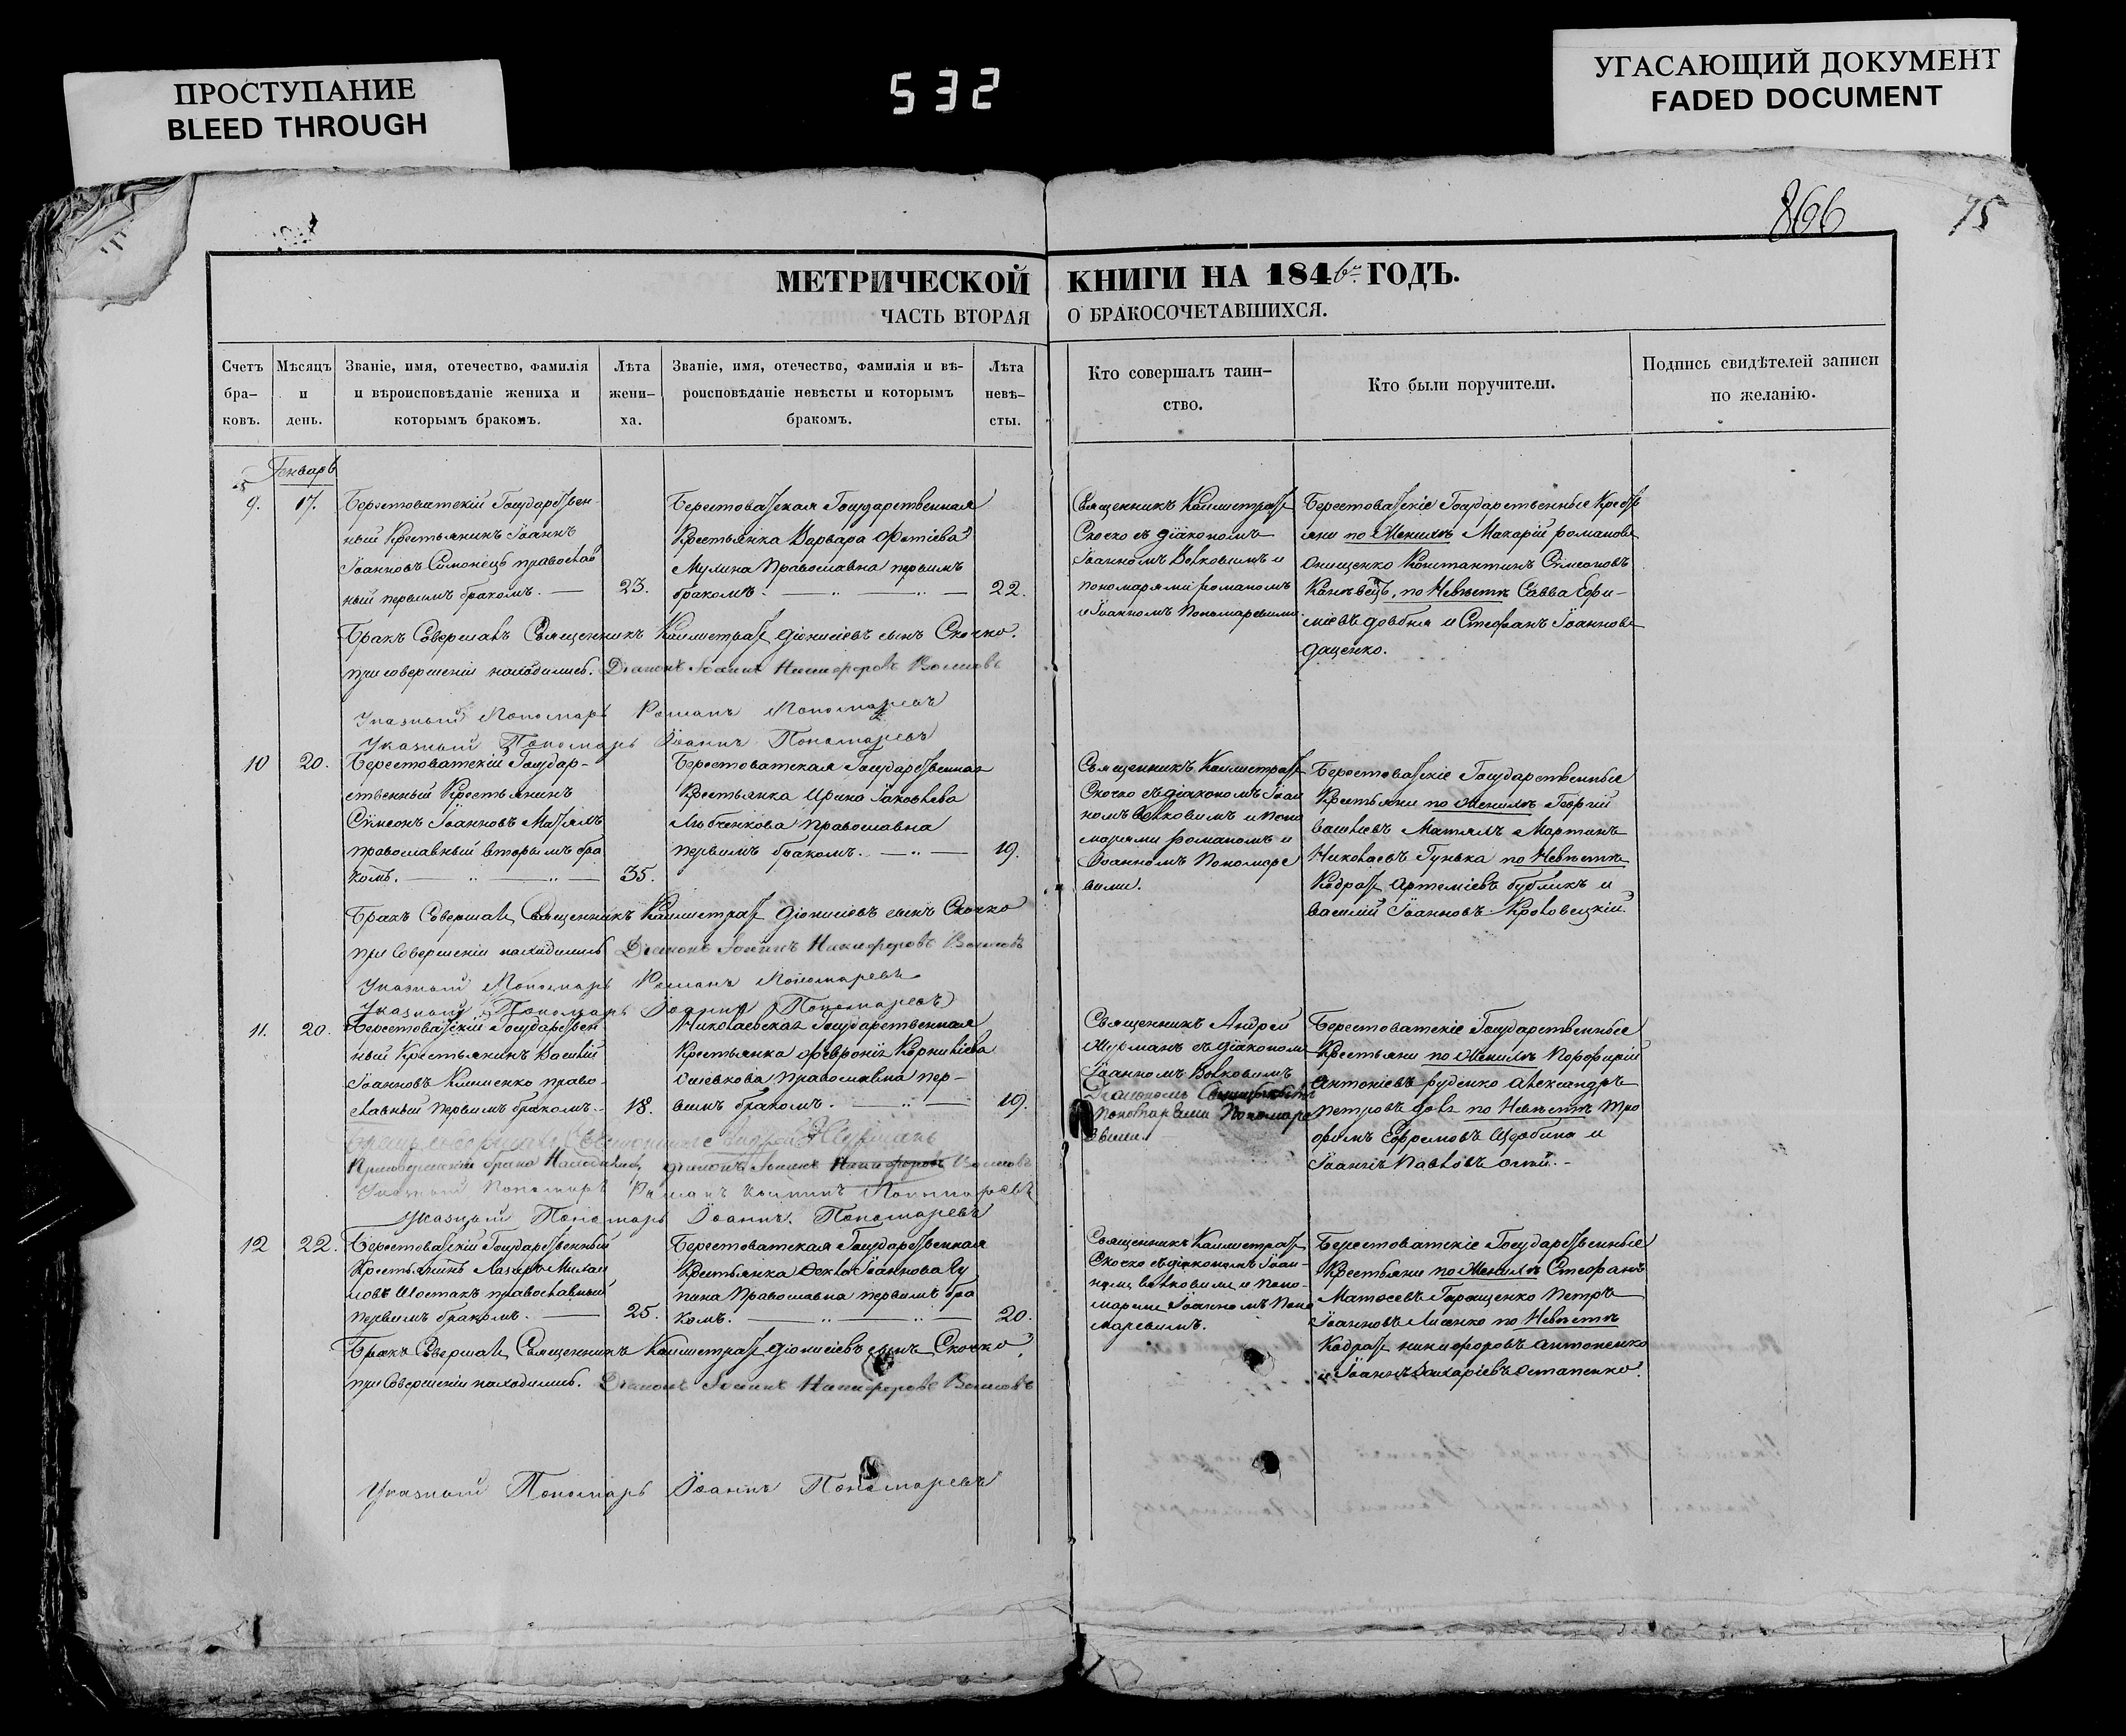 ПРОСТУПАНИЕ
BLEED THROUGH
532
УГАСАЮЩИЙ ДОКУМЕНТ
FADED DOCUMENT
866
75
МЕТРИЧЕСКОЙ КНИГИ НА 1846й ГОДЪ.
ЧАСТЬ ВТОРАЯ О БРАКОСОЧЕТАВШИХСЯ.
Счетъ бра-
ковъ.
Мѣсяцъ
и
день.
Званіе, имя, отечество, фамилія
и вѣроисповѣданіе жениха и
которымъ бракомъ.
Лѣта
жени-
ха.
Званіе, имя, отечество, фамилія и вѣ-
роисповѣданіе невѣсты и которымъ
бракомъ.
Лѣта
невѣ-
сты.
Кто совершалъ таин-
ство.
Кто были поручители.
Подпись свидѣтелей записи
по желанію.
Генварь
9.
17.
Берестоватскій Государствен-
ный Крестьянинъ Іоаннъ
Іоанновъ Симонецъ православ
ный первымъ бракомъ.
23.
Берестоватская Государственная
Крестьянка Варвара Фотіева
Мулина Православна первымъ
бракомъ.
22.
Священникъ Каллистратъ
Скочко съ діакономъ
Іоанномъ Волковымъ и
пономарями Романомъ
и Іоанномъ Пономаревыми
Берестоватскіе Государственные Кресть
яне по Женихѣ Макарій Романовъ
Онищенко Константинъ Симеоновъ
Каневецъ, по Невѣстѣ Савва Ефи-
міевъ Довбня и Стефанъ Іоанновъ
Даценко.
Бракъ Совершалъ Священникъ Каллистратъ Діонисіевъ сынъ Скочко.
при совершеніи находились. Діаконъ Іоаннъ Никифоровъ Волковъ
Указный Пономарь Романъ Пономаревъ
Указный Пономарь Іоаннъ Пономаревъ
10
20.
Берестоватскій Государ-
ственный Крестьянинъ
Симеонъ Іоанновъ Матяшъ
православный вторымъ бра
комъ.
35.
Берестоватская Государственная
Крестьянка Ирина Іаковлева
Любченкова Православна
первымъ бракомъ.
19.
Священникъ Каллистратъ
Скочко съ діакономъ Іоан
номъ Волковымъ и поно
марями Романомъ и
Іоанномъ Пономаре
выми.
Берестоватскіе Государственные
Крестьяне по Женихѣ Георгій
Мартинъ
Николаевъ Гунька по Невѣстѣ
Кодратъ Артеміевъ Бубликъ и
Василій Іоанновъ Кроловецкій.
Бракъ Совершалъ Священникъ Каллистратъ Діонисіевъ сынъ Скочко
при Совершеніи находились Діаконъ Іоаннъ Никифоровъ Волковъ
Указный Пономарь Романъ Пономаревъ
Указный Пономарь Іоаннъ Пономаревъ
11.
20.
Берестоватскій Государствен
ный Крестьянинъ Василій
Іоанновъ Клименко право-
славный первымъ бракомъ.
18.
Николаевская Государственная
Крестьянка Февронія Корниліева
Православна пер-
вымъ бракомъ.
19.
Священникъ Андрей
съ діакономъ
Іоанномъ Волковымъ
Пономарями Пономаре
выми.
Берестоватскіе Государственные
Крестьяне по Женихѣ Порфирій
Антоніевъ Руденко Александръ
Петровъ по Невѣстѣ Тро
фимъ Ефремовъ и
Іоаннъ Павловъ
Діаконъ Іоаннъ Никифоровъ Волковъ
Указный Пономарь Романъ Пономаревъ
Указный Пономарь Іоаннъ. Пономаревъ
12
22.
Берестоватскій Государственный
Крестьянинъ Лазарь Михаи
ловъ Шостакъ православный
первымъ бракомъ.
25.
Берестоватская Государственная
Крестьянка Іоаннова
Православна первымъ бра
комъ.
20.
Священникъ Каллистратъ
Скочко съ діакономъ Іоан-
номъ Волковымъ и поно-
маремъ Іоанномъ Поно
маревымъ.
Берестоватскіе Государственные
Крестьяне по Женихѣ Стефанъ
Матфеевъ Геращенко Петръ
Іоанновъ Лисенко по Невѣстѣ
Кодратъ Никифоровъ Антоненко
и Іоаннъ Захаріевъ Остапенко.
Бракъ Совершалъ Священникъ Каллистратъ Діонисіевъ сынъ Скочко.
при Совершеніи находились. Діаконъ Іоаннъ Никифоровъ Волковъ
Указный Пономарь Іоаннъ Пономаревъ